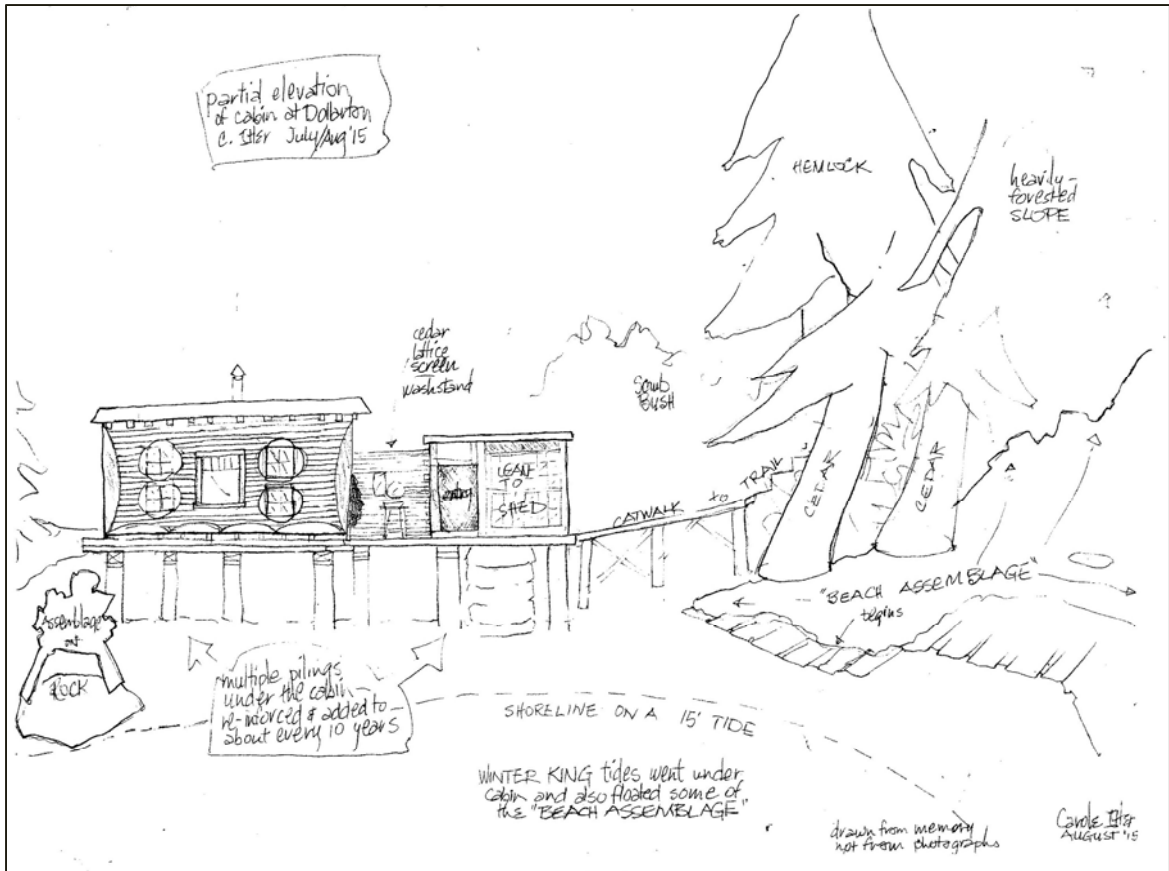 partial elevation
of cabin at Dollarton
C. Itter July/Aug '15
HEMLOCK
heavily-
forested
SLOPE
cedar
lattice
screen
washstand
Scrub
BUSH
LEAN
TO
SHED
CATWALK
TRAIL
CEDAR
CEDAR
"BEACH ASSEMBLAGE"
begins
Assemblage
at
ROCK
multiple pilings
under the cabin -
re-inforced & added to -
about every 10 years
SHORELINE ON A 15' TIDE
WINTER KING tides went under
cabin and also floated some of
the "BEACH ASSEMBLAGE"
drawn from memory
not from photographs
Carole Itter
AUGUST '15